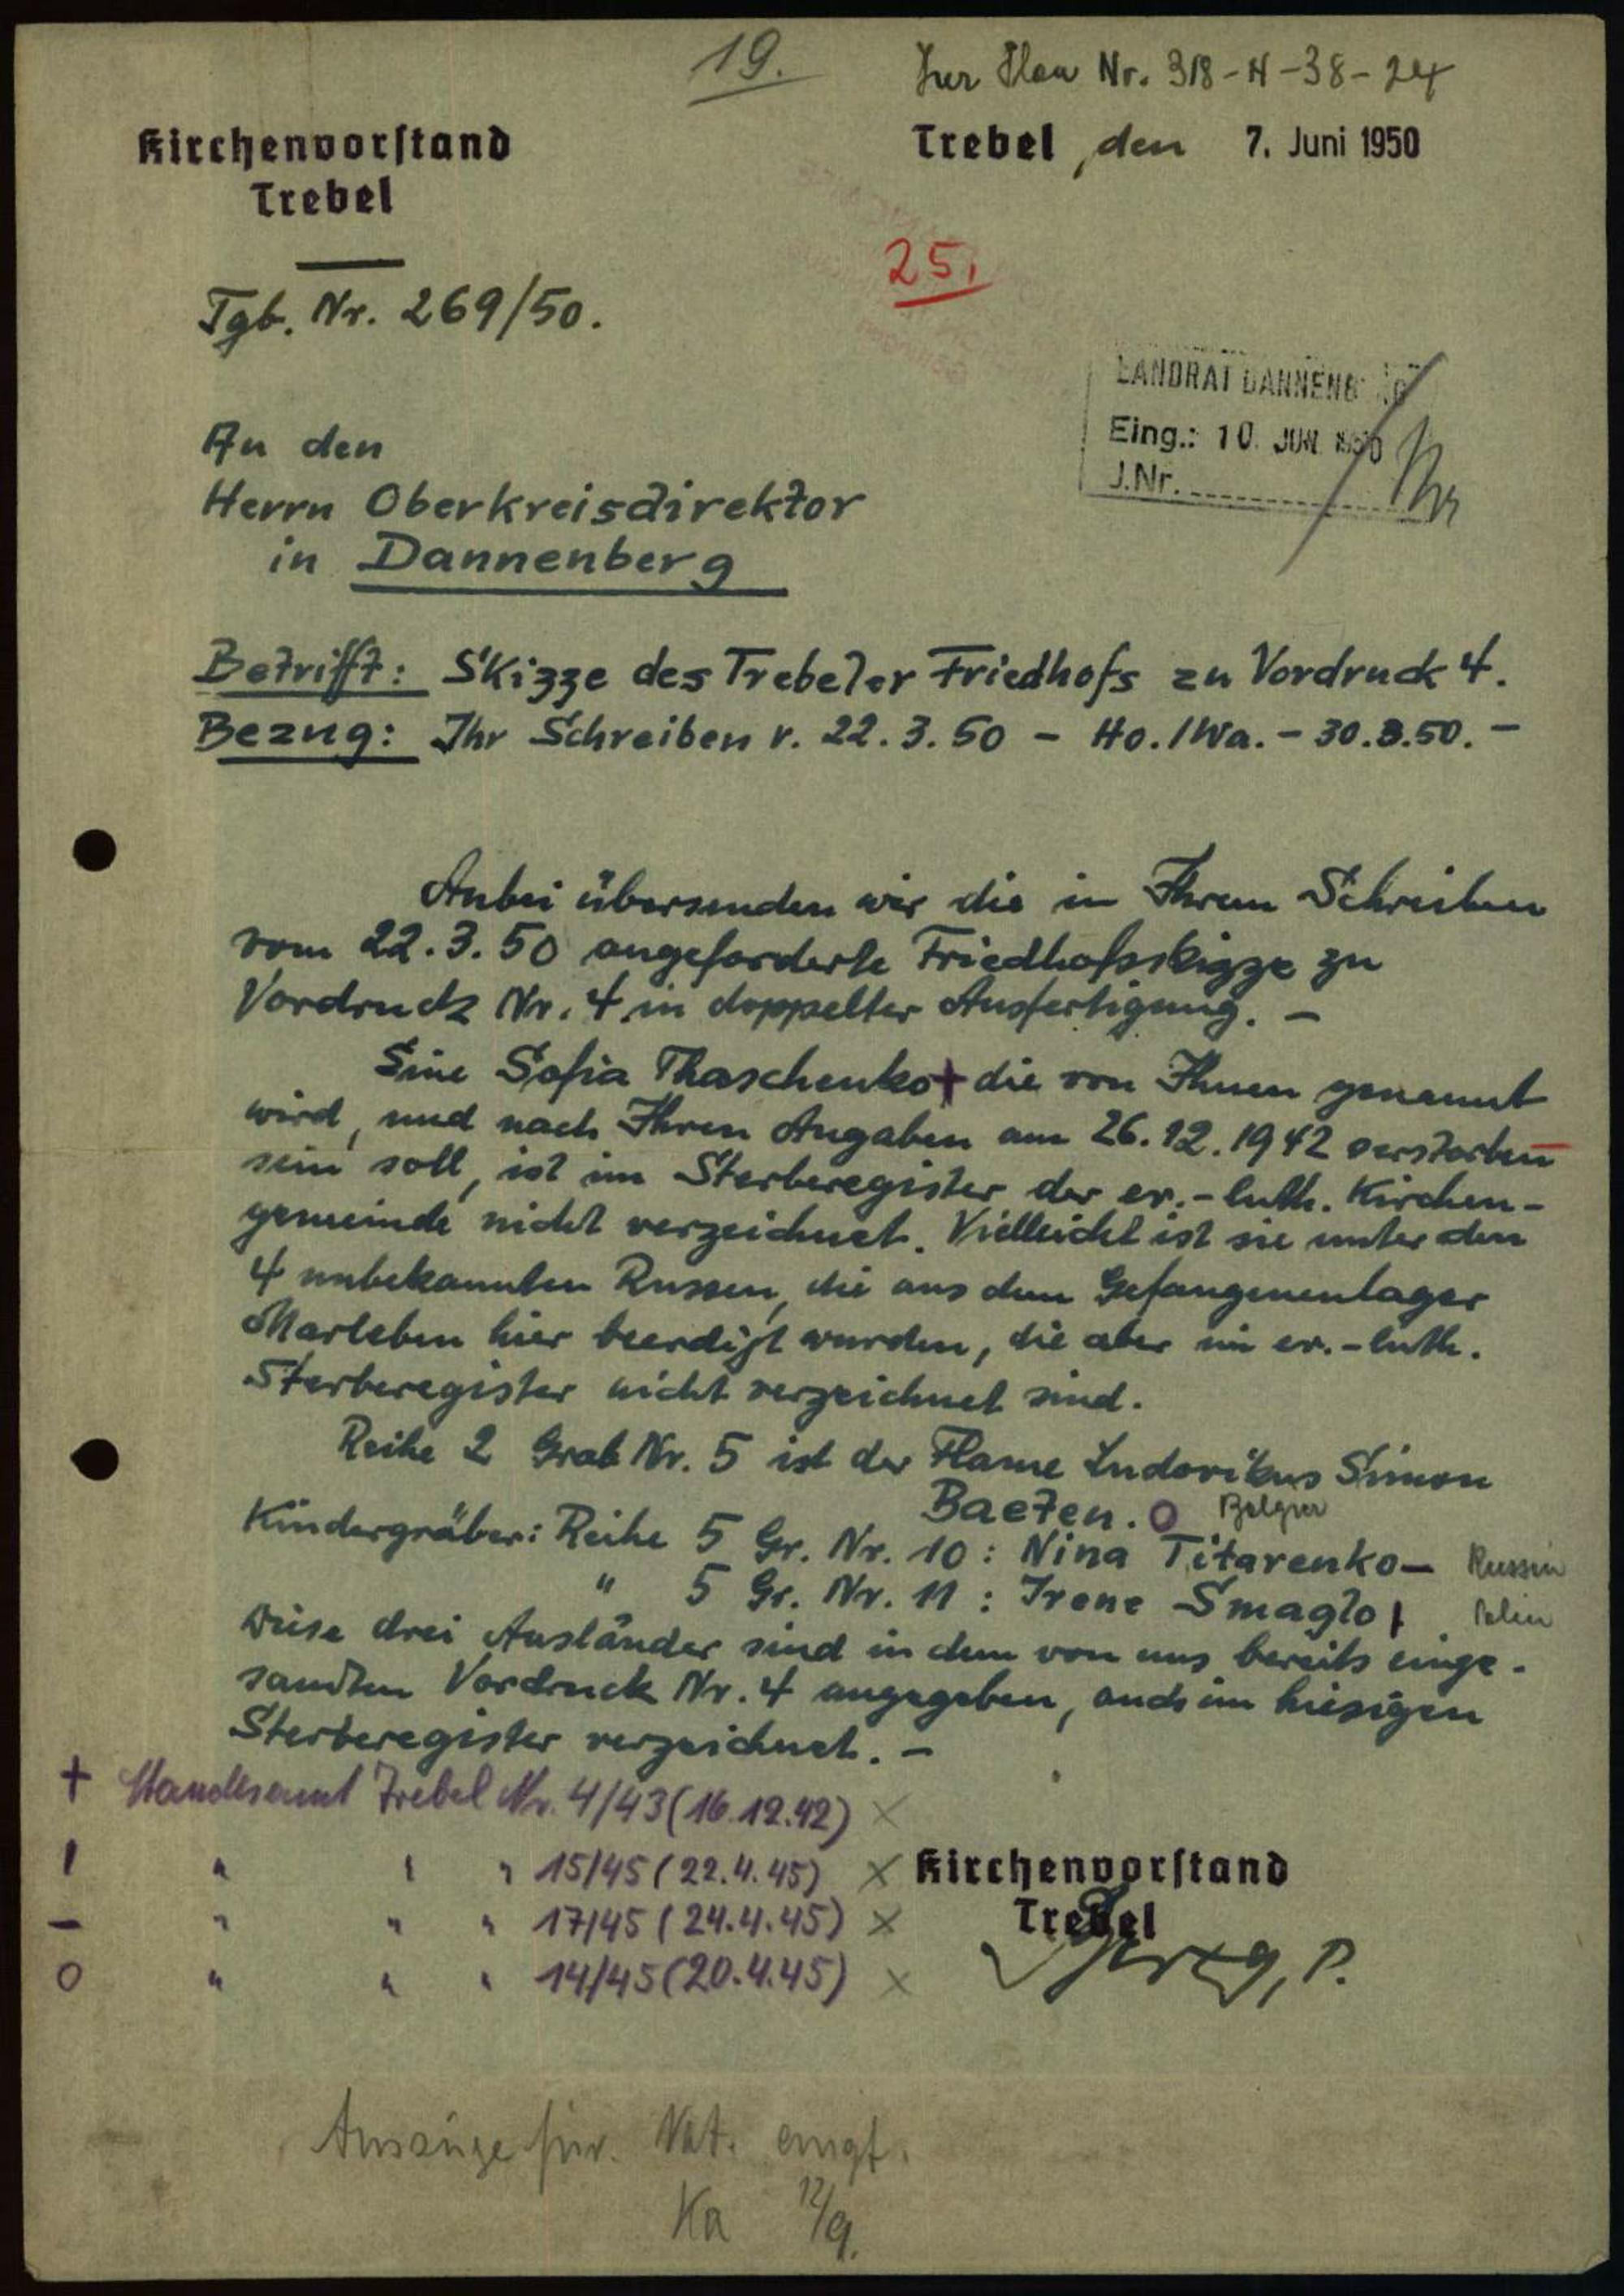 19.
Zur Plan Nr. 318-H-38-24
Kirchenvorstand
Trebel
Trebel, den 7. Juni 1950
25.
Tgb. Nr. 269/50.
LANDRAT DANNENB
Eing.: 10. JUN. 1950
J.Nr.
An den
Herrn Oberkreisdirektor
in Dannenberg
Betrifft: Skizze des Trebeler Friedhofs zu Vordruck 4.
Bezug: Ihr Schreiben v. 22.3.50 - Ho./Wa. - 30.3.50. -
Anbei übersenden wir die in Ihrem Schreiben
vom 22.3.50 angeforderte Friedhofsskizze zu
Vordruck Nr. 4 in doppelter Ausfertigung. -
Eine Sofia Thaschenko + die von Ihnen genannt
wird, und nach Ihren Angaben am 26.12.1942 verstorben
sein soll, ist im Sterberegister der ev.-luth. Kirchen-
gemeinde nicht verzeichnet. Vielleicht ist sie unter den
4 unbekannten Russen, die aus dem Gefangenenlager
Marleben hier beerdigt wurden, die aber im ev.-luth.
Sterberegister nicht verzeichnet sind.
Reihe 2 Grab Nr. 5 ist der Flame Ludovikus Simon
Baeten. O Belgier
Kindergräber: Reihe 5 Gr. Nr. 10: Nina Titarenko - Russin
" 5 Gr. Nr. 11: Irene Smaglo | Polin
Diese drei Ausländer sind in dem von uns bereits einge-
sandten Vordruck Nr. 4 angegeben, auch im hiesigen
Sterberegister verzeichnet. -
+ Standesamt Trebel Nr. 4/43 (16.12.42) X
| " " " 15/45 (22.4.45) X
- " " " 17/45 (24.4.45) X
O " " " 14/45 (20.4.45) X
Kirchenvorstand
Trebel
P.
Auszüge für. Nat. angf.
Ka 12/9.